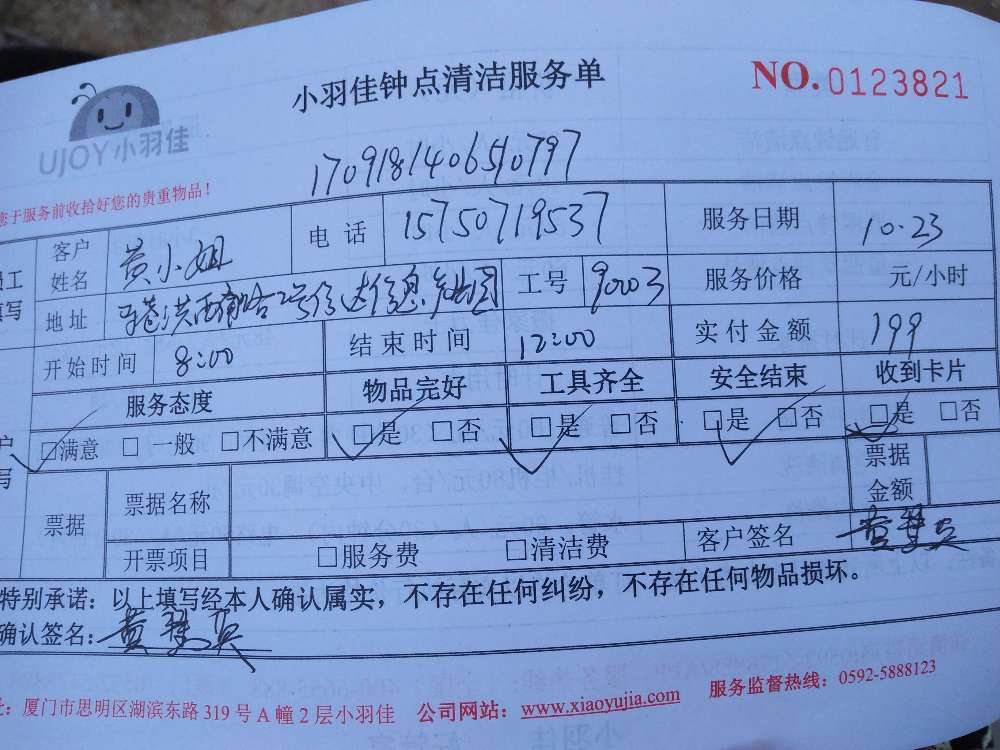 小羽佳钟点清洁服务单
NO.0123821
UJOY小羽佳
170918140650797
您于服务前收拾好您的贵重物品！
客户姓名 黄小姐 电话 15750719537 服务日期 10.23
地址 工号 90003 服务价格 元/小时
开始时间 8:00 结束时间 12:00 实付金额 199
服务态度 物品完好 工具齐全 安全结束 收到卡片
□满意 □一般 □不满意 □是 □否 □是 □否 □是 □否 □是 □否
票据 票据名称 票据金额
开票项目 □服务费 □清洁费 客户签名
特别承诺：以上填写经本人确认属实，不存在任何纠纷，不存在任何物品损坏。
确认签名：
厦门市思明区湖滨东路319号A幢2层小羽佳 公司网站：www.xiaoyujia.com 服务监督热线：0592-5888123